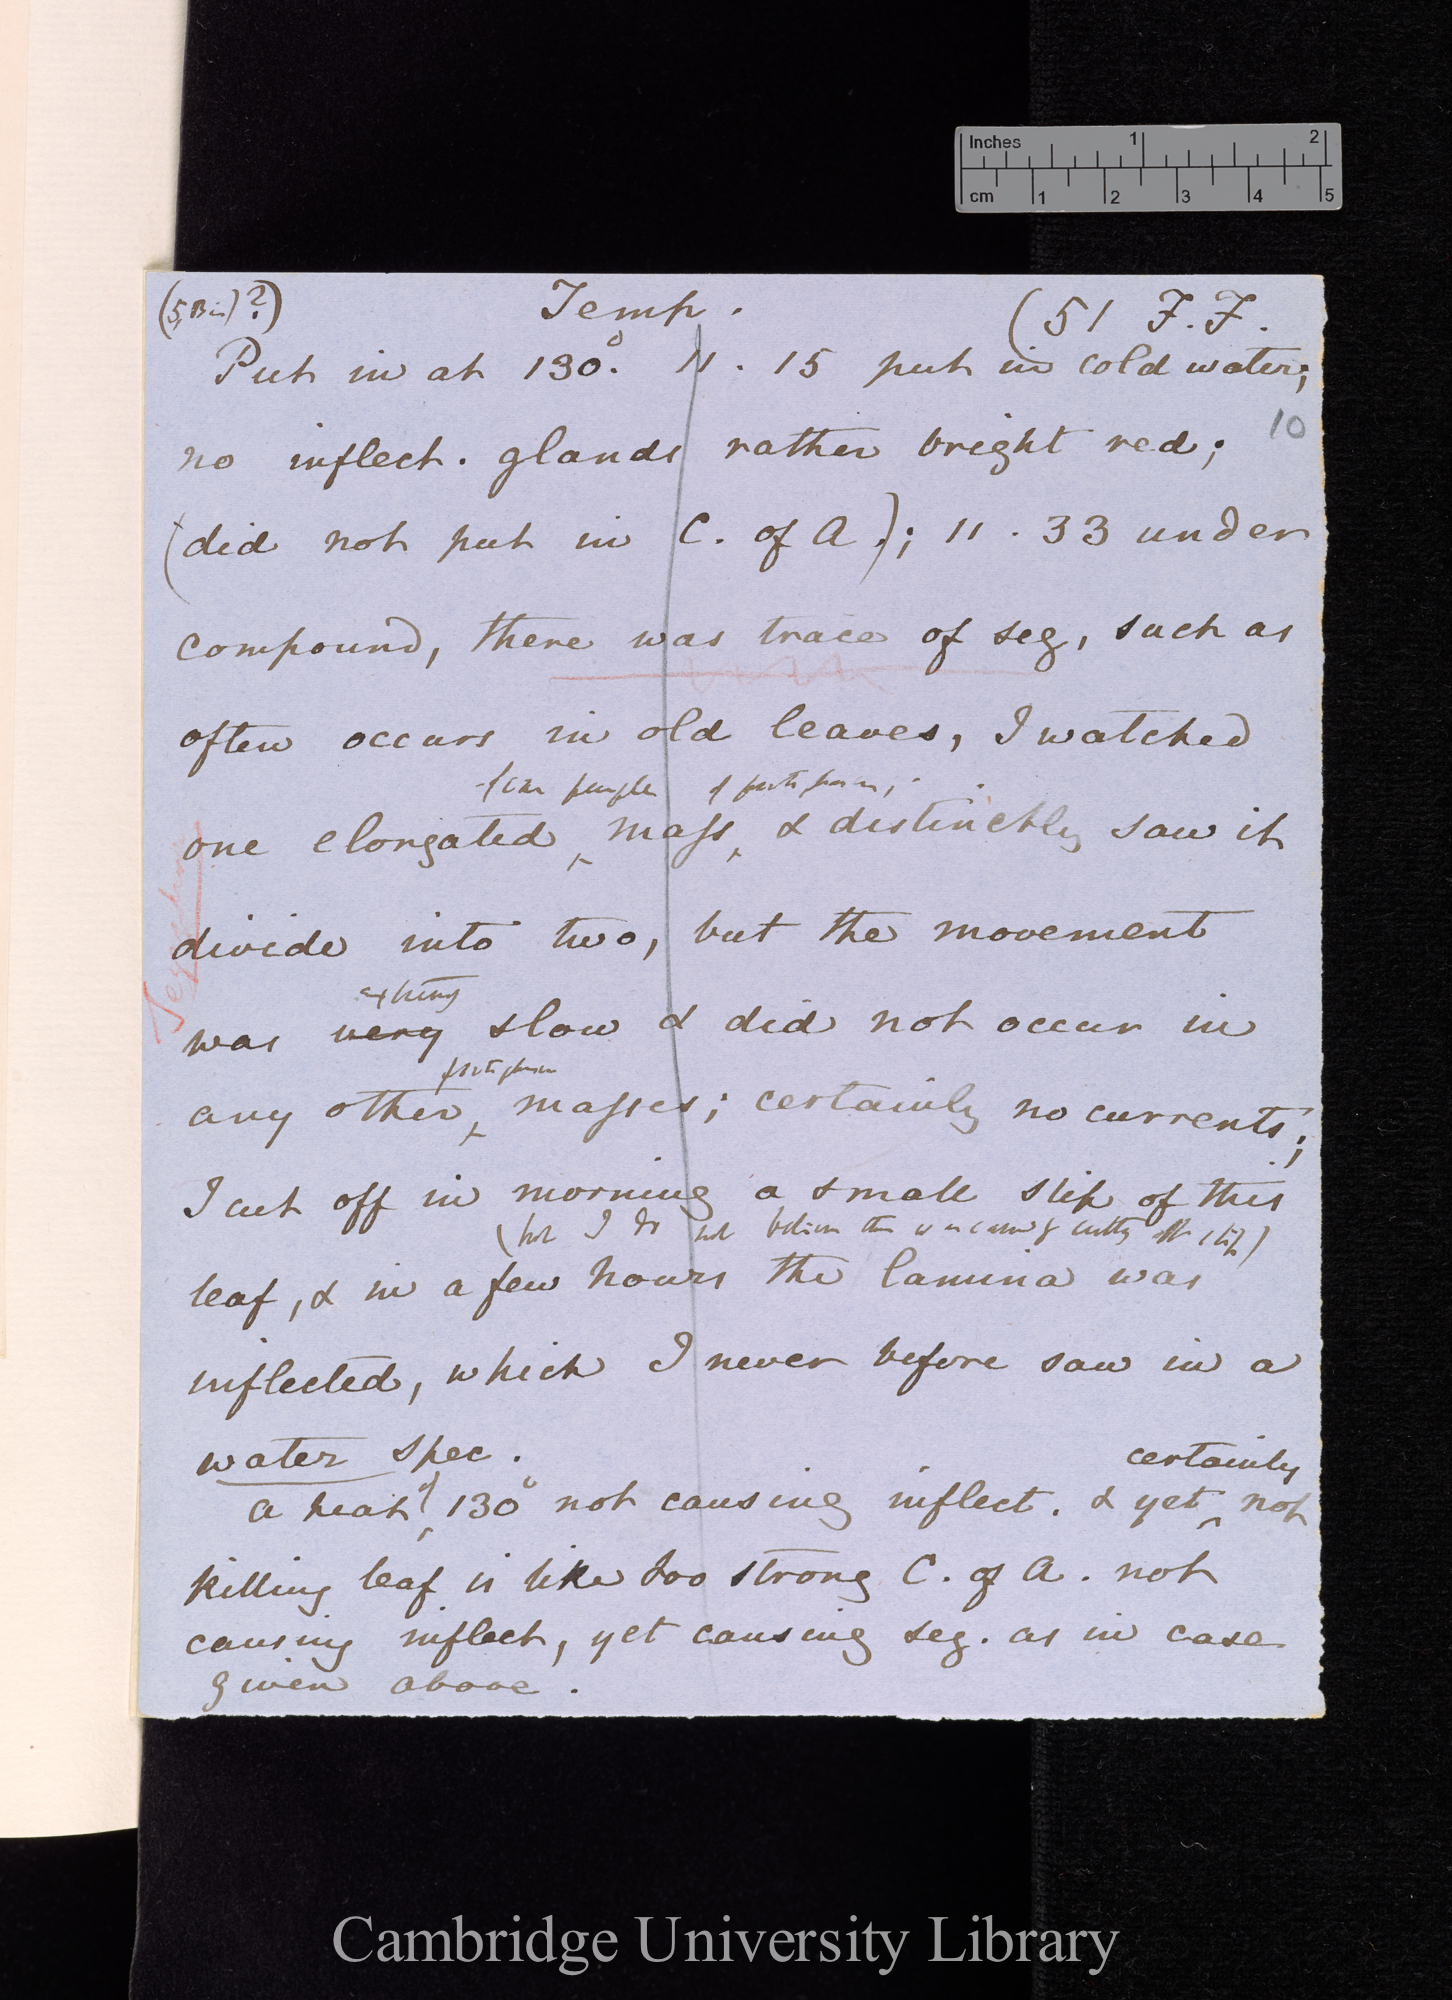 Inches 1 2
cm 1 2 3 4 5
(5, Bis) ?) Temp. (51 F.F.
Put in at 130°. 11.15 put in cold water;
10
no inflect. glands rather bright red;
(did not put in C. of A.); 11.33 under
compound, there was trace of seg, such as
often occurs in old leaves, I watched
purple of protoplasm,
one elongated mass & distinctly saw it
divide into two, but the movement
extremely
was very slow & did not occur in
protoplasm
any other masses; certainly no currents;
I cut off in morning a small slip of this
(but I do not believe this was cause of cutting off slip)
leaf, & in a few hours the lamina was
inflected, which I never before saw in a
water spec.
certainly
A heat of 130° not causing inflect. & yet not
killing leaf is like too strong C. of A. not
causing inflect, yet causing seg. as in case
given above.
Cambridge University Library